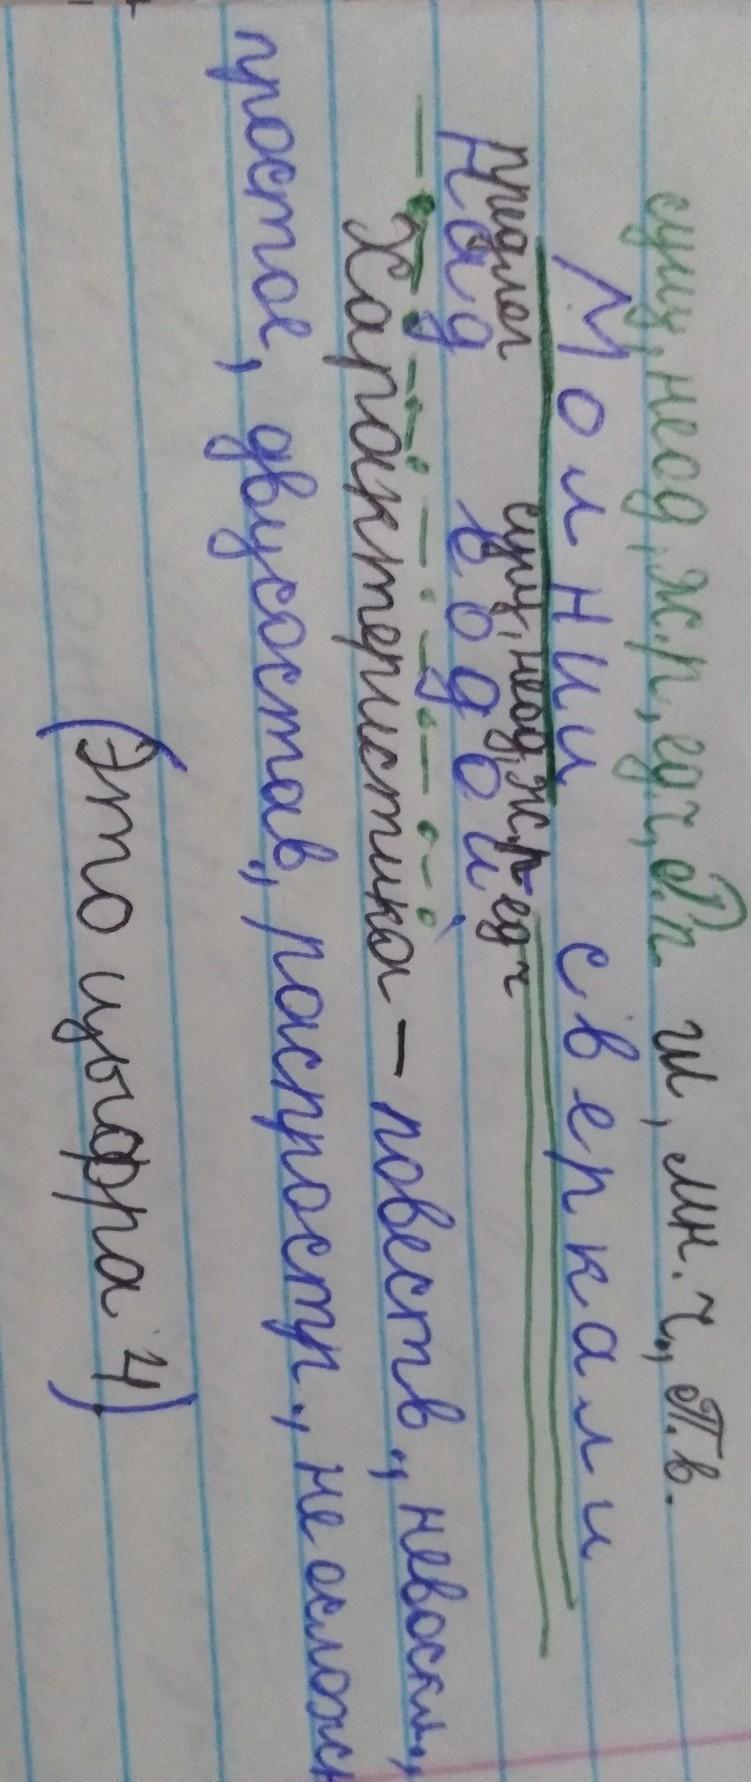 сущ, неод, ж.р, ед.ч, Р.п. гл, мн.ч., П.в.
Молнии сверкали
предлог сущ, неод, ж.р ед ч
над водой
Характеристика – повеств., невоскл.,
простое, двусостав., распростр., не ослож
(Это цыфра 4)